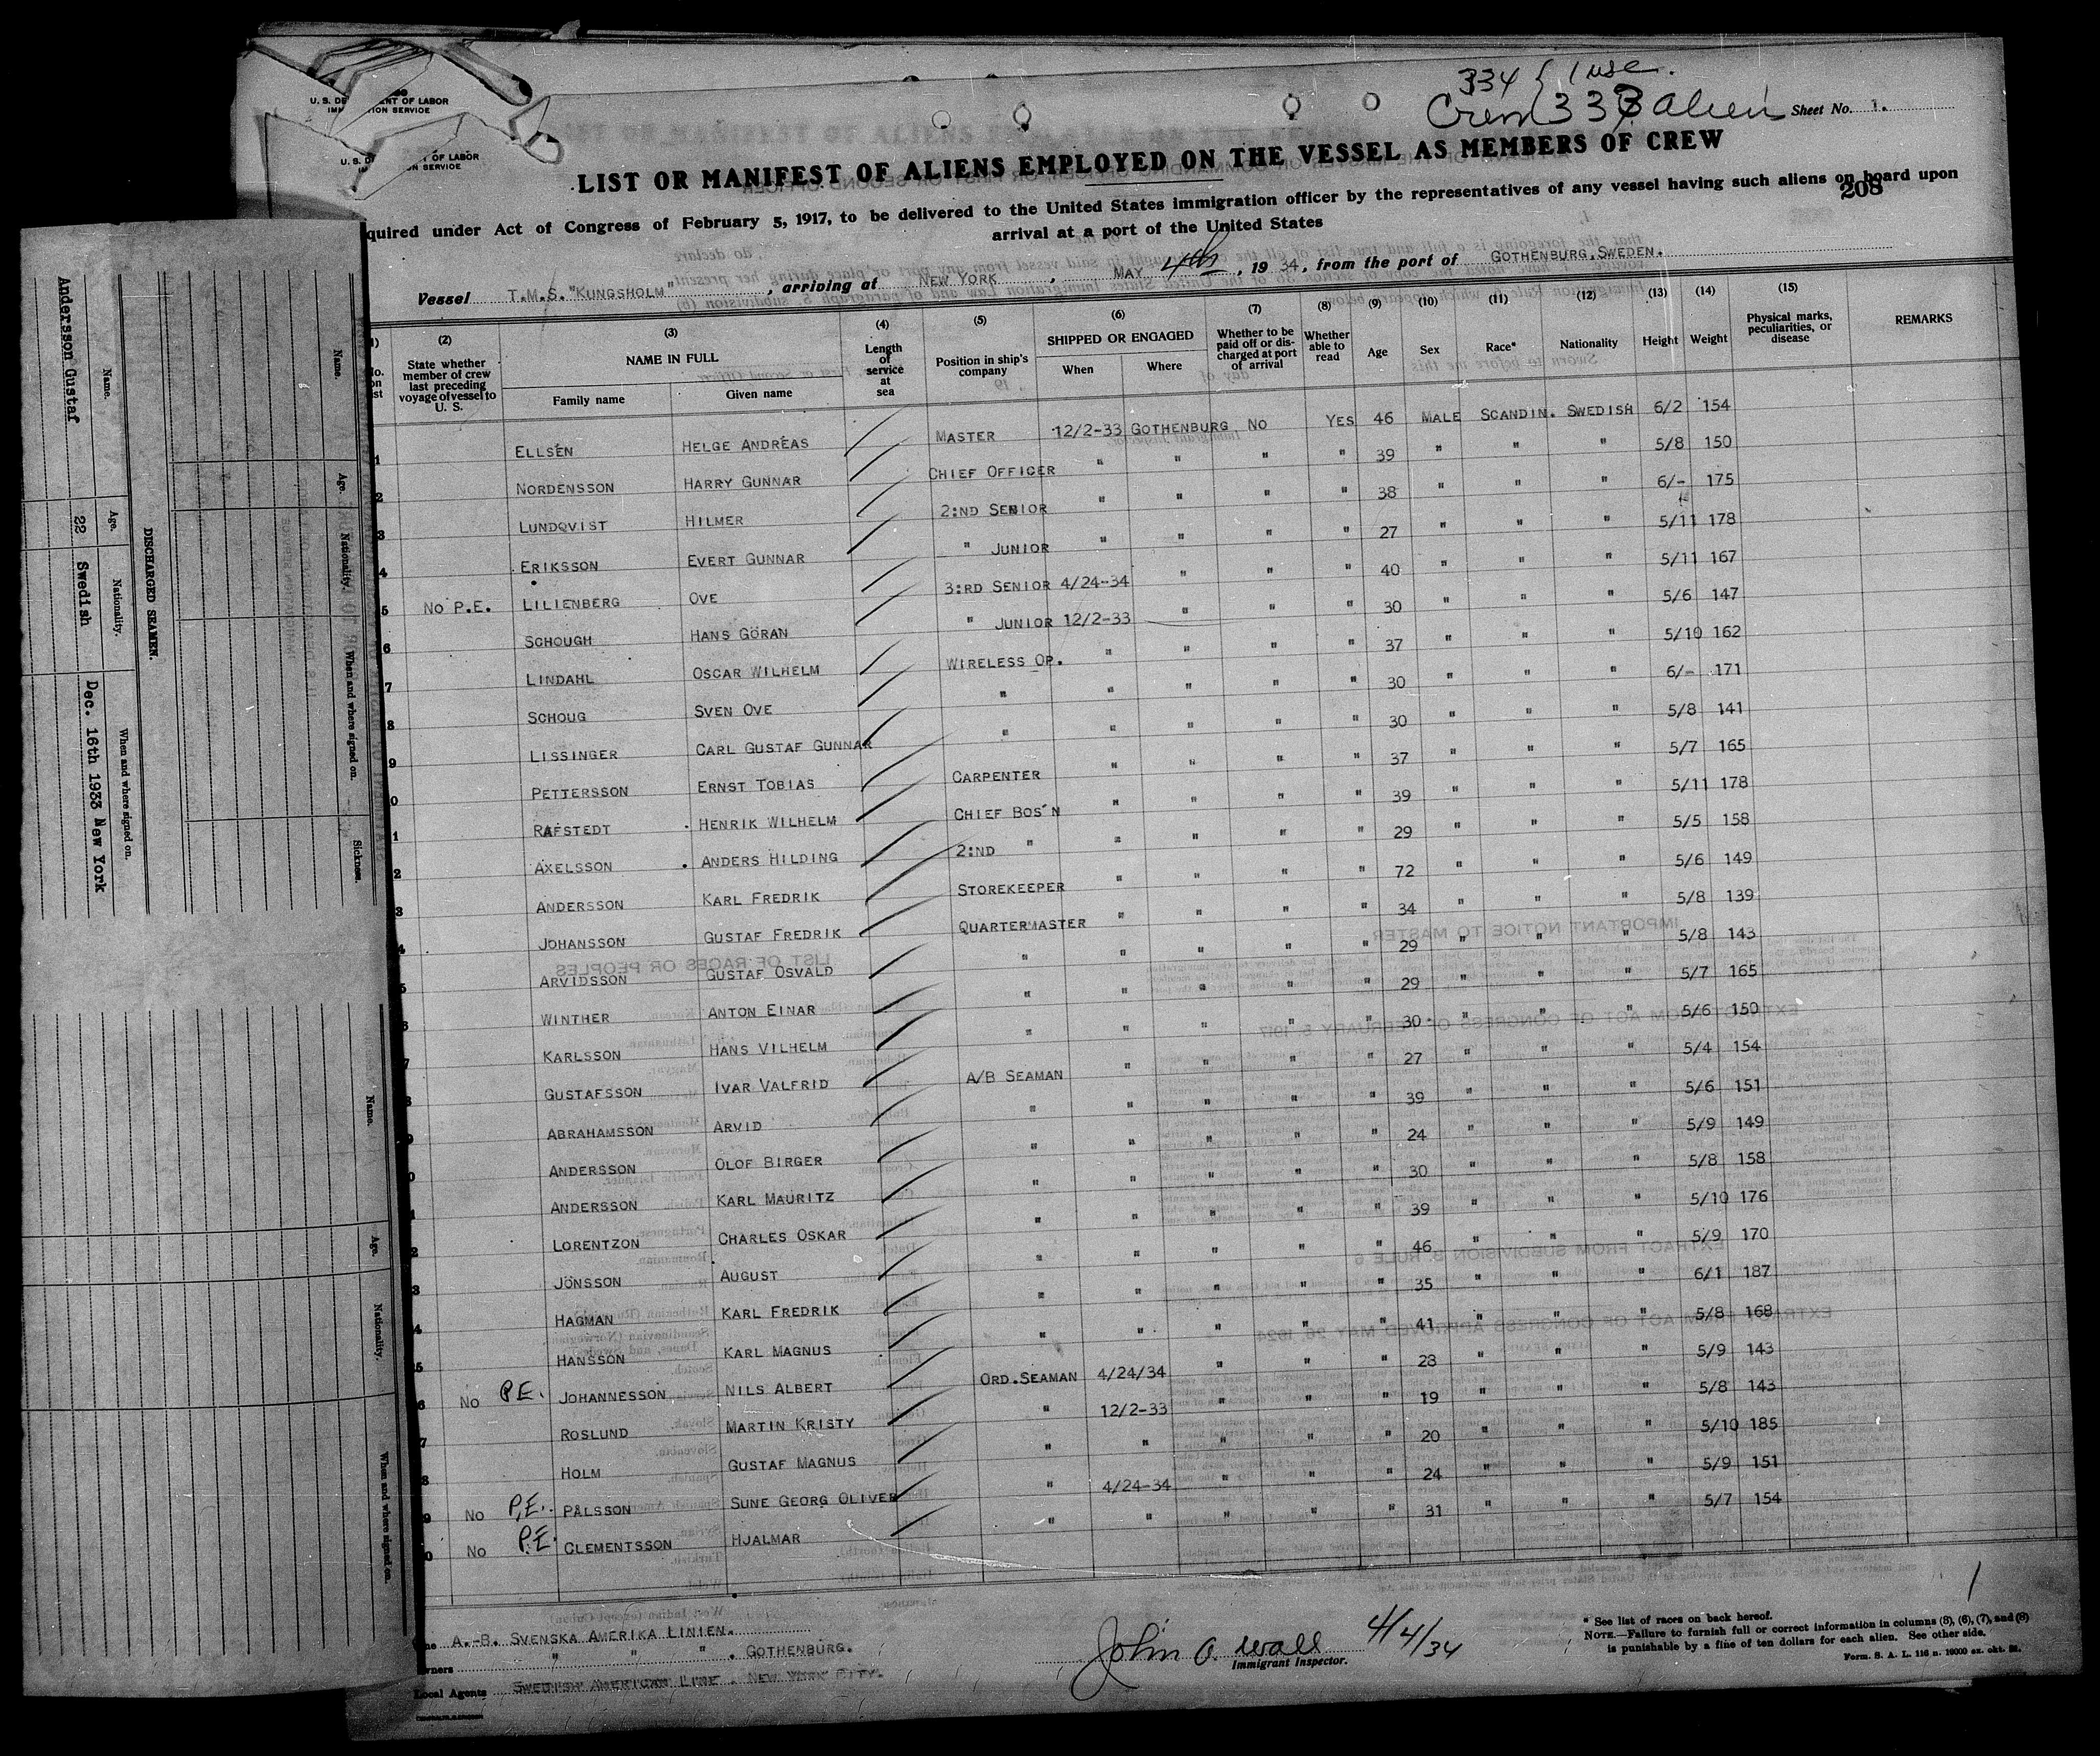 334 { 1 use.
Crew 333 alien
Sheet No. 1.
U. S. DE NT OF LABOR
IMM TION SERVICE
U. S. D OF LABOR
I N SERVICE
LIST OR MANIFEST OF ALIENS EMPLOYED ON THE VESSEL AS MEMBERS OF CREW
208
quired under Act of Congress of February 5, 1917, to be delivered to the United States immigration officer by the representatives of any vessel having such aliens on board upon
arrival at a port of the United States
Vessel T.M.S. "KUNGSHOLM", arriving at NEW YORK, MAY 4th, 1934, from the port of GOTHENBURG, SWEDEN.
(2) (3) (4) (5) (6) (7) (8) (9) (10) (11) (12) (13) (14) (15)
State whether member of crew last preceding voyage of vessel to U. S. NAME IN FULL Family name Given name Length of service at sea Position in ship's company SHIPPED OR ENGAGED When Where Whether to be paid off or discharged at port of arrival Whether able to read Age Sex Race* Nationality Height Weight Physical marks, peculiarities, or disease REMARKS
1 ELLSÉN HELGE ANDRÉAS MASTER 12/2-33 GOTHENBURG NO YES 46 MALE SCANDIN. SWEDISH 6/2 154
2 NORDENSSON HARRY GUNNAR CHIEF OFFICER " " " " 39 " " " 5/8 150
3 LUNDQVIST HILMER 2:ND SENIOR " " " " 38 " " " 6/- 175
4 ERIKSSON EVERT GUNNAR " JUNIOR " " " " 27 " " " 5/11 178
5 NO P.E. LILIENBERG OVE 3:RD SENIOR 4/24-34 " " " 40 " " " 5/11 167
6 SCHOUGH HANS GÖRAN " JUNIOR 12/2-33 " " " 30 " " " 5/6 147
7 LINDAHL OSCAR WILHELM WIRELESS OP. " " " " 37 " " " 5/10 162
8 SCHOUG SVEN OVE " " " " " 30 " " " 6/- 171
9 LISSINGER CARL GUSTAF GUNNAR " " " " " 30 " " " 5/8 141
0 PETTERSSON ERNST TOBIAS CARPENTER " " " " 37 " " " 5/7 165
1 RAFSTEDT HENRIK WILHELM CHIEF BOS'N " " " " 39 " " " 5/11 178
2 AXELSSON ANDERS HILDING 2:ND " " " " " 29 " " " 5/5 158
3 ANDERSSON KARL FREDRIK STOREKEEPER " " " " 72 " " " 5/6 149
4 JOHANSSON GUSTAF FREDRIK QUARTERMASTER " " " " 34 " " " 5/8 139
5 ARVIDSSON GUSTAF OSVALD " " " " " 29 " " " 5/8 143
6 WINTHER ANTON EINAR " " " " " 29 " " " 5/7 165
7 KARLSSON HANS VILHELM " " " " " 30 " " " 5/6 150
8 GUSTAFSSON IVAR VALFRID A/B SEAMAN " " " " 27 " " " 5/4 154
9 ABRAHAMSSON ARVID " " " " " 39 " " " 5/6 151
0 ANDERSSON OLOF BIRGER " " " " " 24 " " " 5/9 149
1 ANDERSSON KARL MAURITZ " " " " " 30 " " " 5/8 158
2 LORENTZON CHARLES OSKAR " " " " " 39 " " " 5/10 176
3 JÖNSSON AUGUST " " " " " 46 " " " 5/9 170
4 HAGMAN KARL FREDRIK " " " " " 35 " " " 6/1 187
5 HANSSON KARL MAGNUS " " " " " 41 " " " 5/8 168
6 NO P.E. JOHANNESSON NILS ALBERT ORD.SEAMAN 4/24/34 " " " 28 " " " 5/9 143
7 ROSLUND MARTIN KRISTY " 12/2-33 " " " 19 " " " 5/8 143
8 HOLM GUSTAF MAGNUS " " " " " 20 " " " 5/10 185
9 NO P.E. PÅLSSON SUNE GEORG OLIVER " 4/24-34 " " " 24 " " " 5/9 151
0 NO P.E. CLEMENTSSON HJALMAR " " " " " 31 " " " 5/7 154
A.-B. SVENSKA AMERIKA LINIEN.
wners " " ". GOTHENBURG.
Local Agents SWEDISH AMERICAN LINE. NEW YORK CITY.
John O. Wall 4/4/34
Immigrant Inspector.
* See list of races on back hereof.
NOTE.—Failure to furnish full or correct information in columns (3), (6), (7), and (8)
is punishable by a fine of ten dollars for each alien. See other side.
DISCHARGED SEAMEN.
Name. Age. Nationality. When and where signed on.
Andersson Gustaf 22 Swedish Dec. 16th 1933 New York
Name. Age. Nationality. When and where signed on. Sickness.
Name. Age. Nationality. When and where signed on.